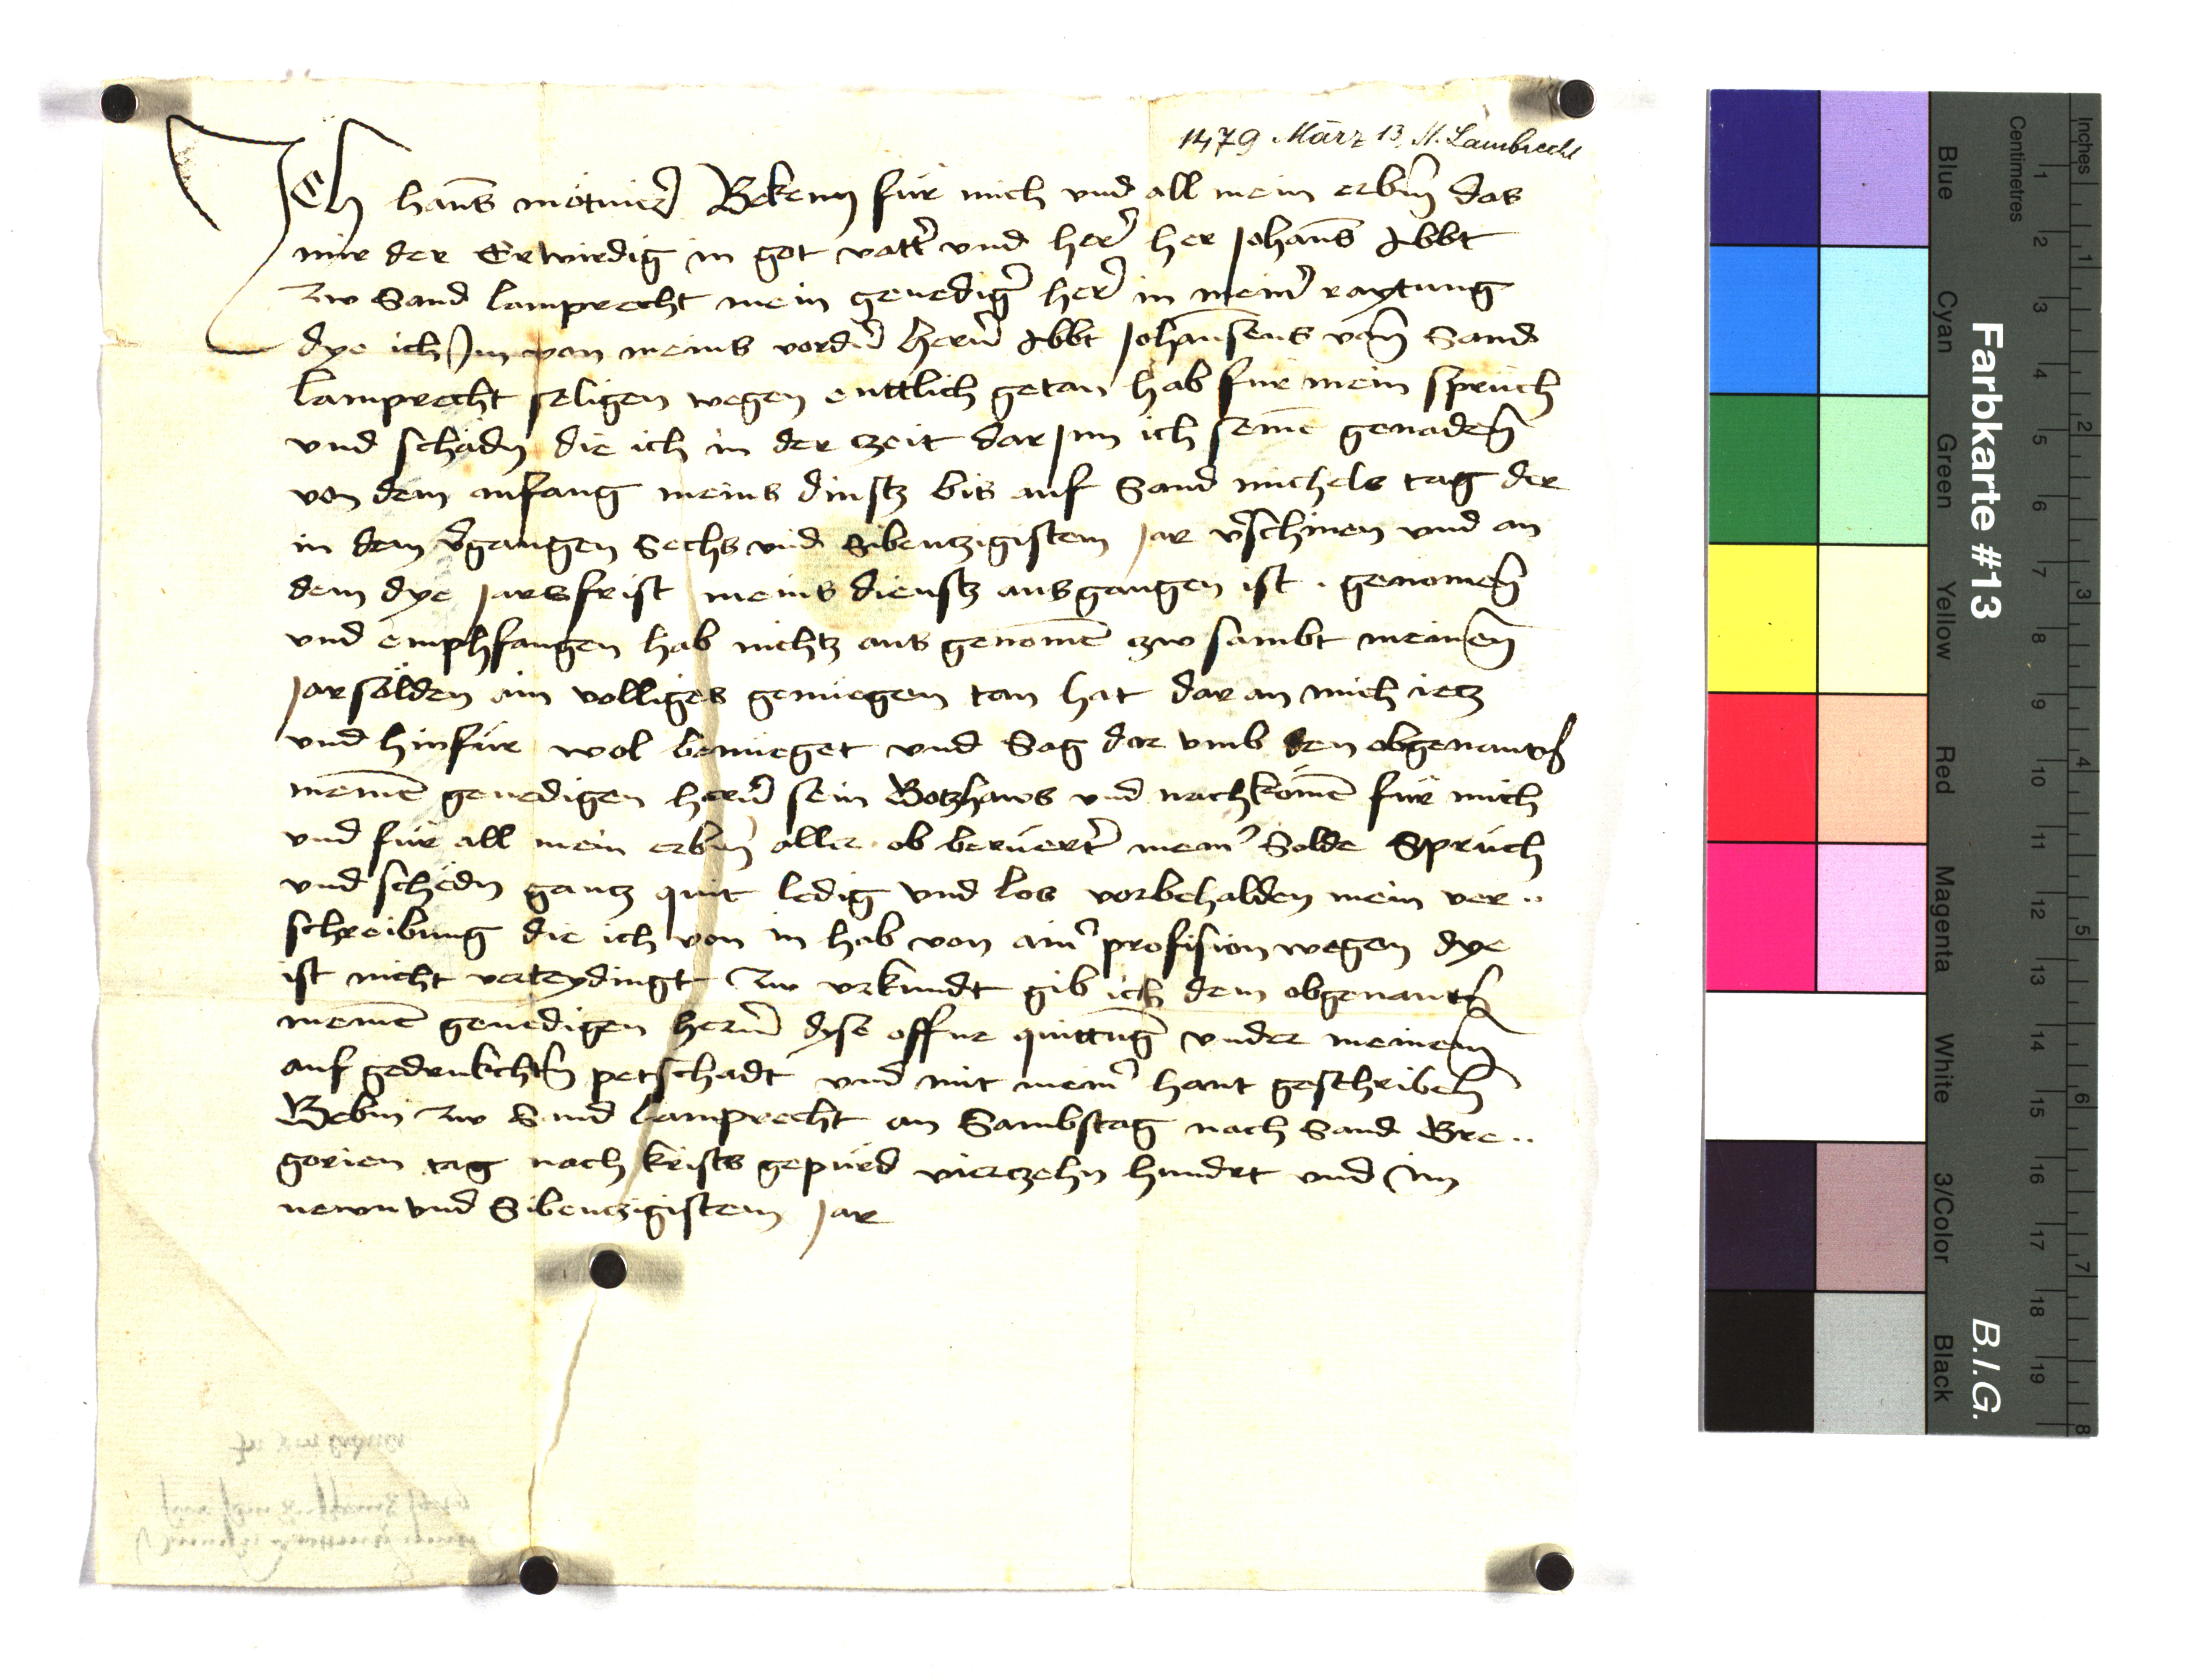 1479 März 13, St. Lambrecht
Ich hanns mötnicer Bekenn für mich vnd all mein erbm das
mir der Erwirdig in got vatter vnd herr her Johanns Abbt
zw Sand lamprecht mein genediger herr in meiner raytung
dye ich Jm von meins vordern herrn Abbt Johannsens von Sand
lamprecht seligen wegen enttlich getan hab für mein sprüch
vnd schädn die ich in der czeit dar Inn ich seinen genaden
von dem anfang meins dinstz bis auf Sand michels tag der
in dem vergangen Sechs vnd Sibenczigistem Jar verschinen vnd an
dem dye Jarsfrist meins dienstz ausgangen ist . genomen
vnd emphfangen hab nichtz aus genomen czw sambt meinen
Jarsölden ain volligs genüegen tan hat dar an mich iecz
vnd hinfür wol benüeget vnd Sag dar vmb den obgenanten
meinen genedigen herrn sein Gotzhaws vnd nachkömen für mich
vnd für all mein erbm aller ob berüerter meiner Solde Sprüch
vnd schedn gancz quit ledig vnd los vorbehalden mein ver..
schreibung die ich von in hab von ainer profision wegen dye
ist nicht verteydingt Zw vrkundt gib ich dem obgenanten
meinen genedigen herrn dyse offne quittung vnder meinem
auf gedrukchten petschadt vnd mit meiner hant geschriben
Gebm zw Sand lamprecht an Sambstag nach Sand Gre..
gorien tag nach krists gepürd vierczehn hundrt vnd Im
newn vnd Sibenczigistem Jar
Farbkarte #13
B.I.G.
Blue
Cyan
Green
Yellow
Red
Magenta
White
3/Color
Black
Centimetres
1 2 3 4 5 6 7 8 9 10 11 12 13 14 15 16 17 18 19
Inches
1 2 3 4 5 6 7 8